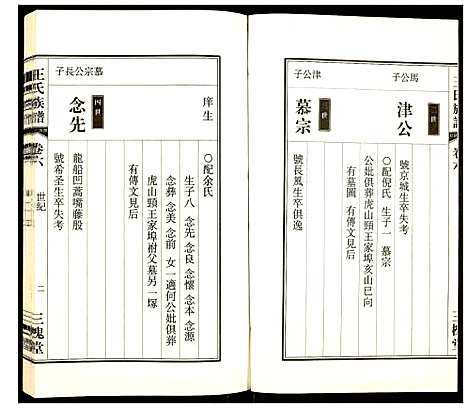 馬公子
津公
號京城生卒失考
配倪氏 生子一 慕宗
公妣俱葬虎山頸王家埠亥山巳向
有墓圖 有傳文見后
津公子
世
慕宗
號長風生卒俱逸
庠生
配余氏
生子八 念先 念良 念懷 念本 念源
念彝 念美 念前 女一適何公妣俱葬
虎山頸王家埠祔父墓另一塚
有傳文見后
慕宗公長子
四世
念先
號希圣生卒失考
龍船凹蒿嘴藤殷
王氏族譜
卷六
世紀
二
三槐堂